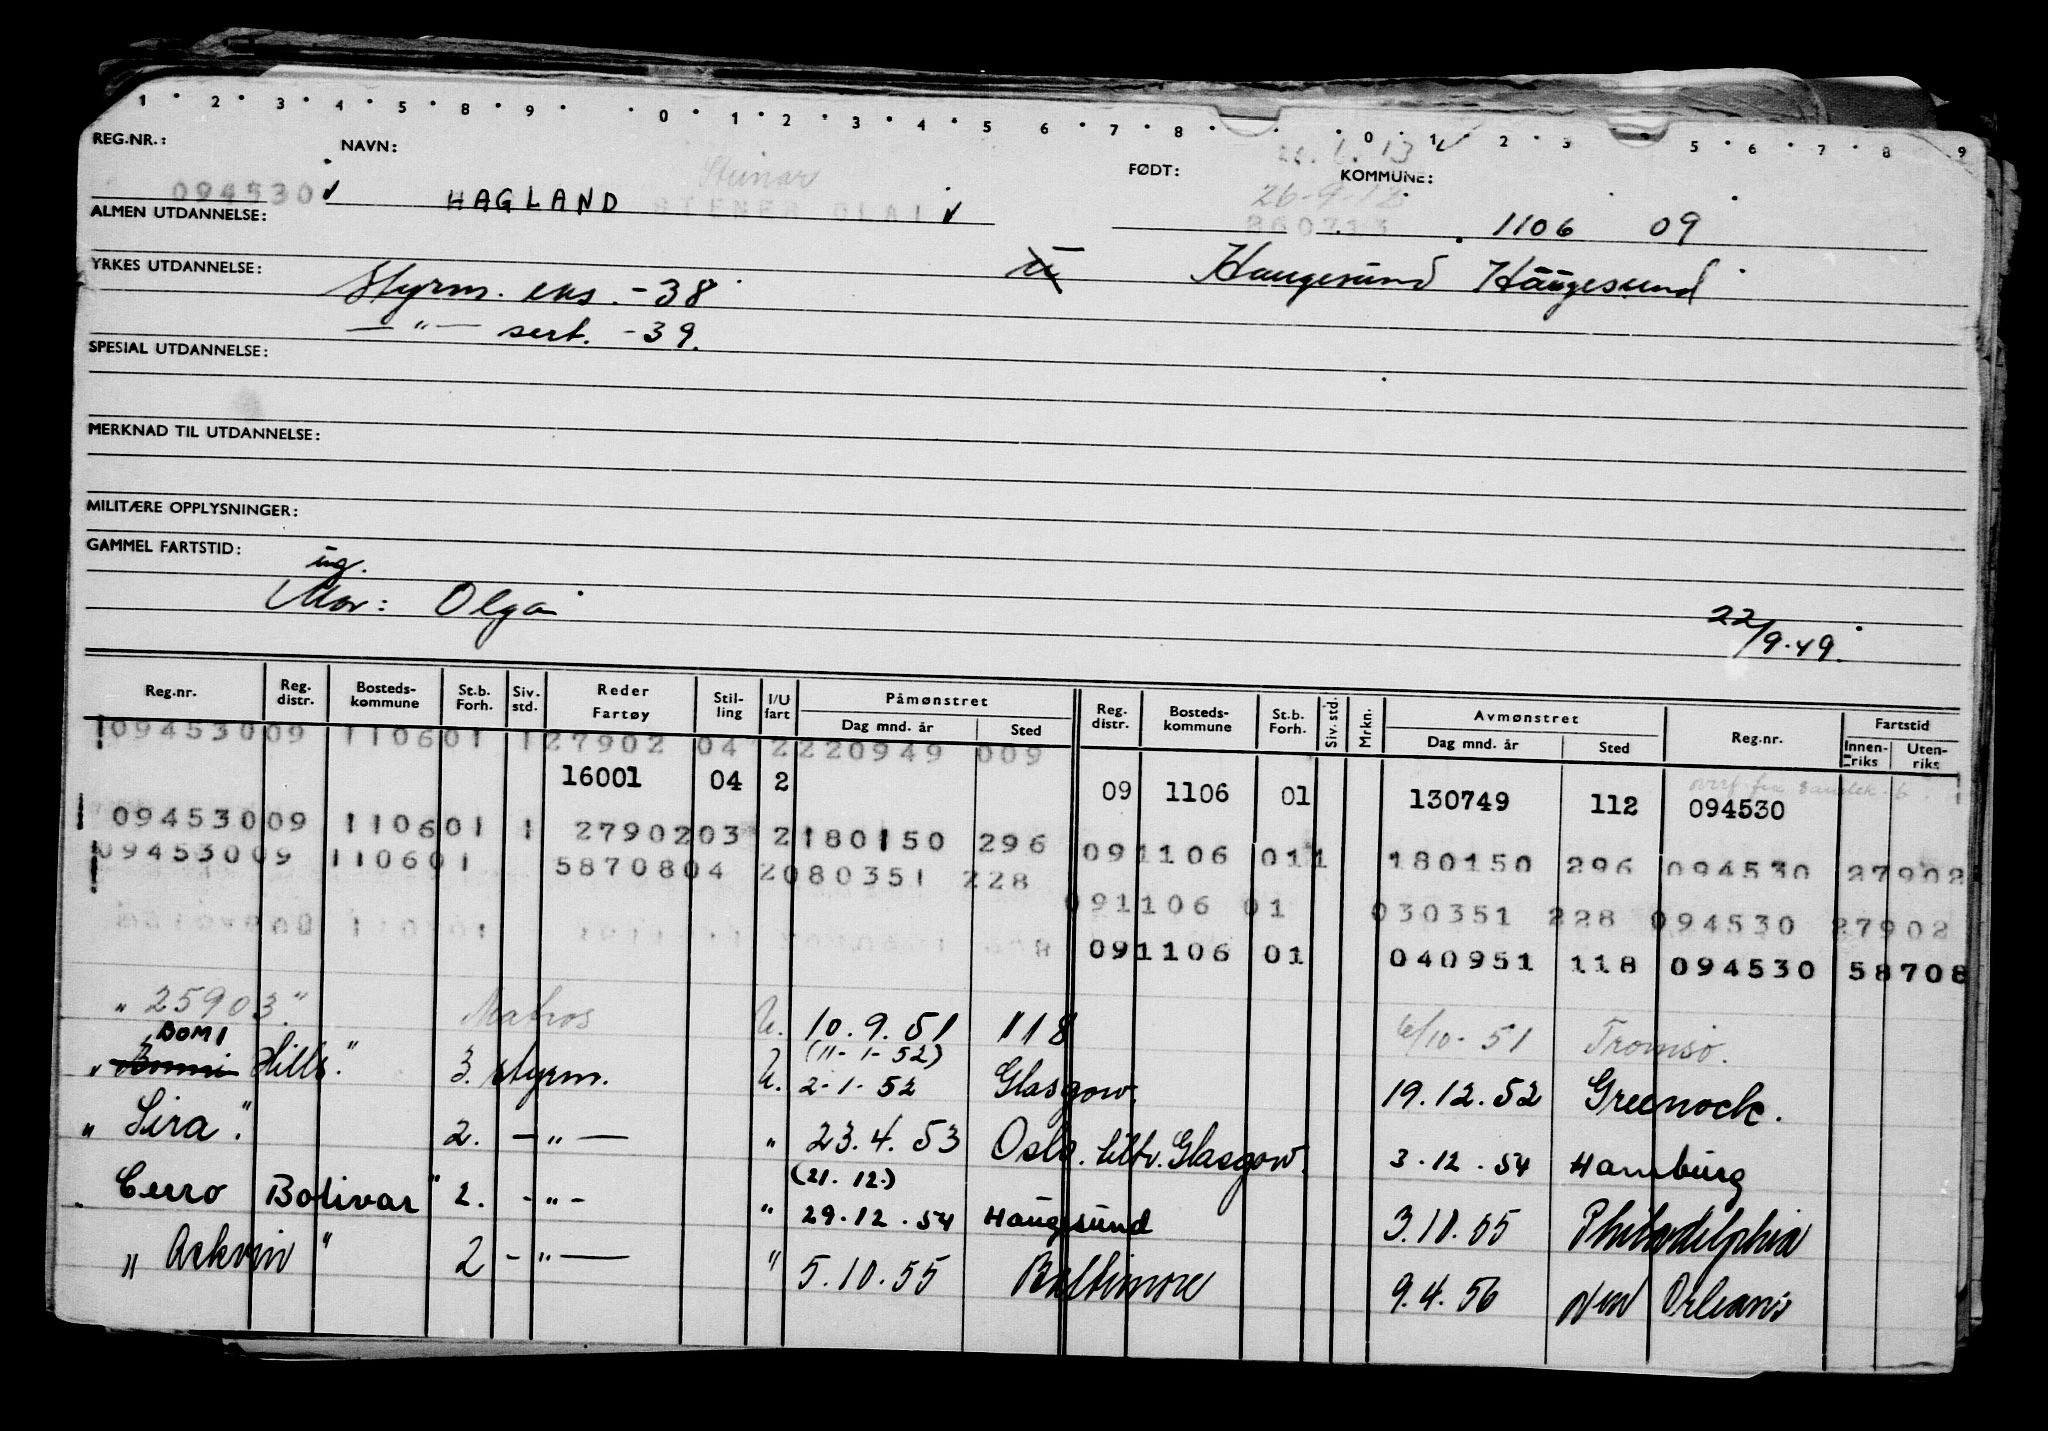 1 2 3 4 5 8 9 0 1 2 3 4 5 6 7 8 0 1 2 3 5 6 7 8 9
REG.NR.: NAVN: Steinar FØDT: KOMMUNE:
094530 HAGLAND STENER OLAI 26-9-12 1106 09
ALMEN UTDANNELSE:
Haugesund Haugesund
YRKES UTDANNELSE: Styrm. eks. -38
— " — sert. -39.
SPESIAL UTDANNELSE:
MERKNAD TIL UTDANNELSE:
MILITÆRE OPPLYSNINGER:
GAMMEL FARTSTID:
ing.
Mor: Olga
22/9.49.
Reg.nr. Reg. distr. Bosteds-kommune St.b. Forh. Siv. std. Reder Fartøy Stil-ling I/U fart Påmønstret Dag mnd. år Sted Reg. distr. Bosteds-kommune St.b. Forh. Siv. std. Mrkn. Avmønstret Dag mnd. år Sted Reg.nr. Fartstid Innen-riks Uten-riks
094530 09 1106 01 1 27902 04 2 220949 009
16001 04 2 09 1106 01 130749 112 094530
094530 09 1106 01 1 27902 03 2 180150 296 09 1106 01 1 180150 296 094530 27902
094530 09 1106 01 58708 04 2 080351 228 09 1106 01 030351 228 094530 27902
09 1106 01 040951 118 094530 58708
" 25903." Matros U. 10.9.51 118 6/10-51 Tromsø.
BOMI (11-1-52)
" Bommi Hills." 3. styrm. U. 2-1-52 Glasgow. 19.12.52 Greenock.
" Sira". 2. — " — " 23.4.53 Oslo. tiltr. Glasgow. 3.12.54 Hamburg
(21.12.)
" Cerro Bolivar" 2. - " - " 29.12.54 Haugesund 3.10.55 Philadelphia
" Askvin " 2 - " — " 5.10.55 Baltimore 9.4.56 New Orleans